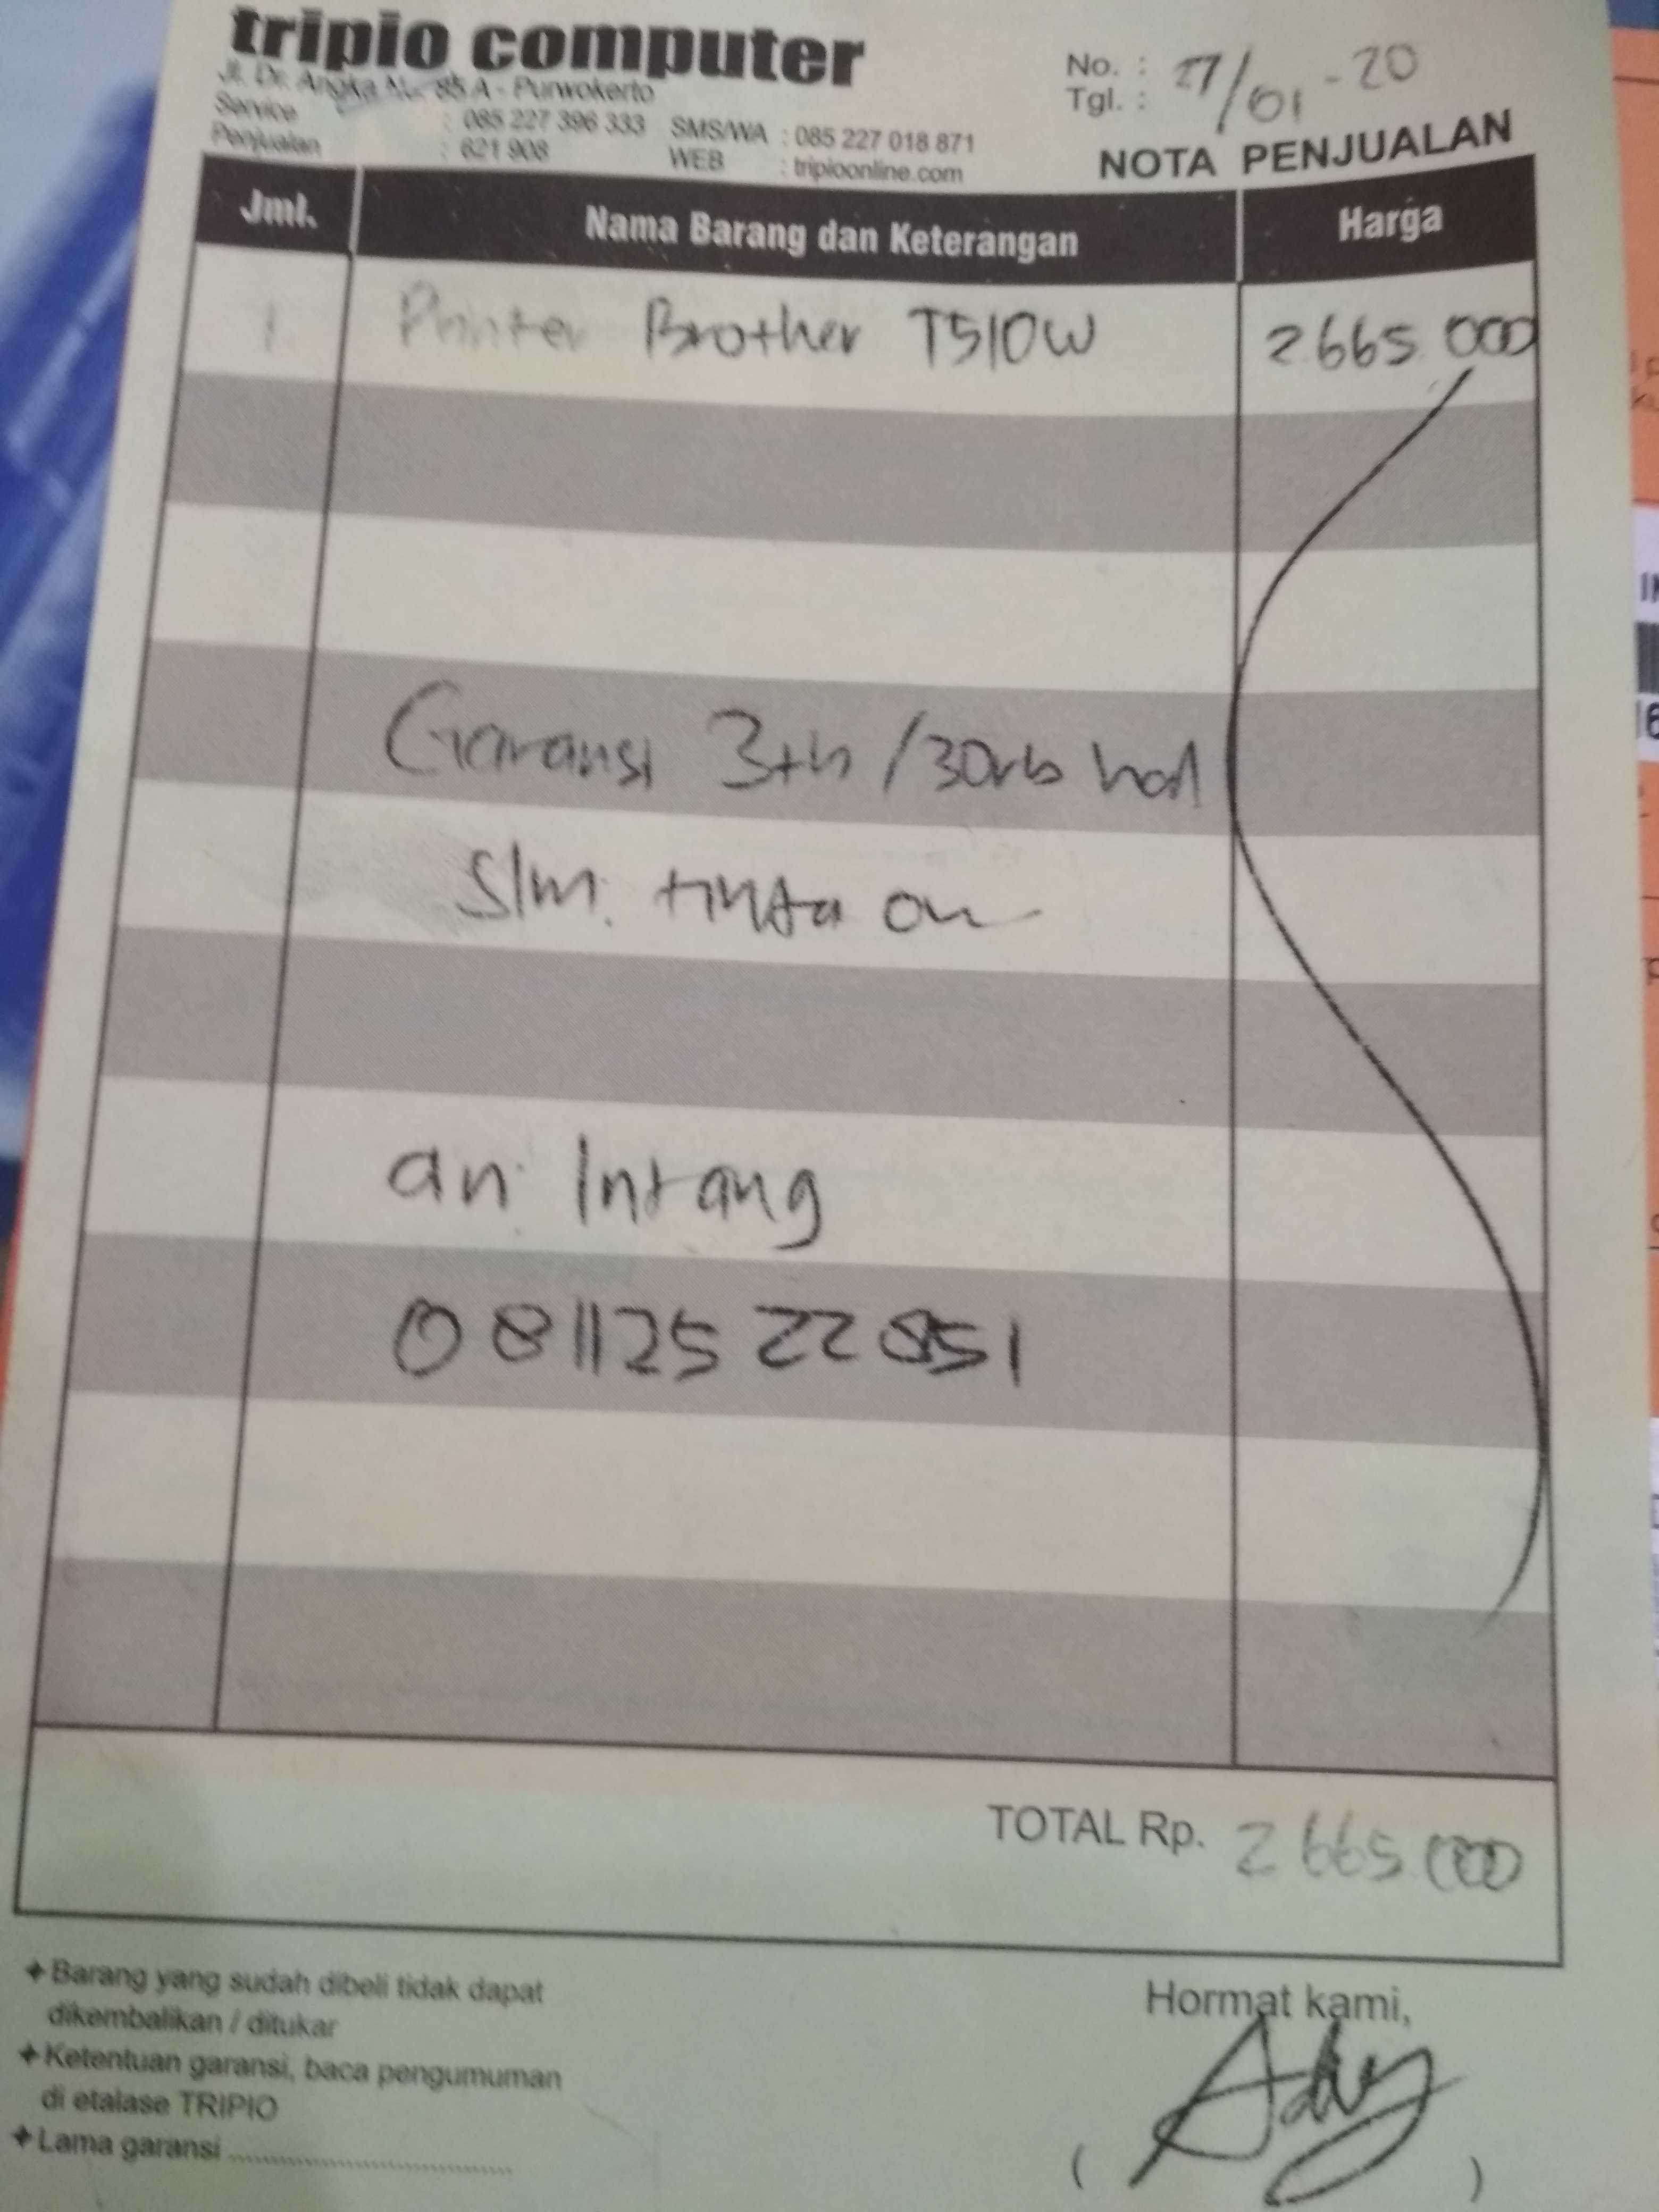 tripio computer
Jl. Dr. Angka No. 85 A - Purwokerto
Service : 085 227 396 333 SMS/WA : 085 227 018 871
Penjualan : 621 908 WEB : tripioonline.com
No. :
Tgl. : 27/01-20
NOTA PENJUALAN
Jml. Nama Barang dan Keterangan Harga
1 Printer Brother T510W 2.665.000
Garansi 3th /30rb hal
Slm. tinta ori
an. Intang
0811 25 22 851
TOTAL Rp. 2.665.000
Barang yang sudah dibeli tidak dapat
dikembalikan / ditukar
Ketentuan garansi, baca pengumuman
di etalase TRIPIO
Lama garansi ..............................
Hormat kami,
( Ady )